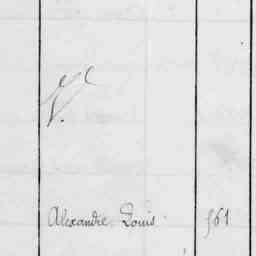 Alexandre Louis
561